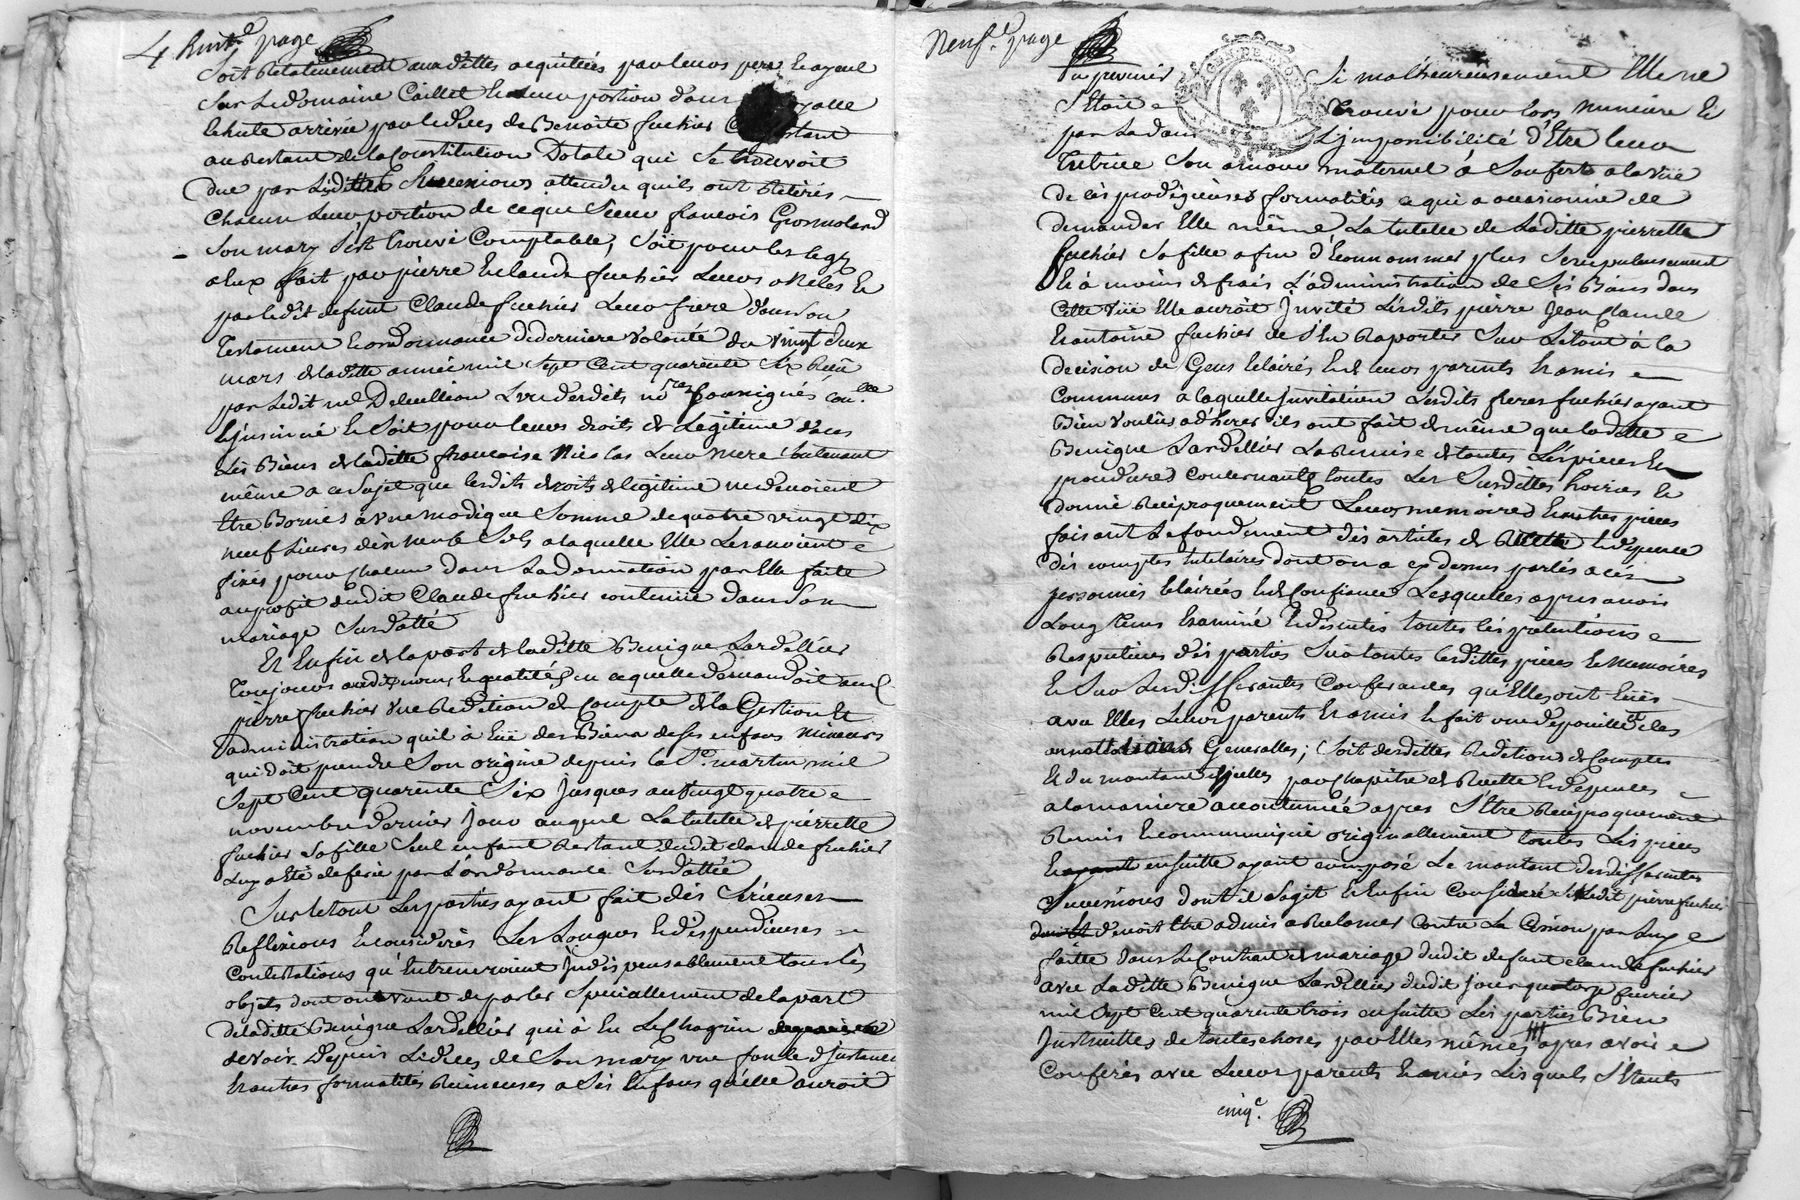 4 huit.e page
Soit Relativement aux dittes acquitées par leurs pere & ayeul
Sur Le domaine Caillet & leur portion dans
Echute arrivée par le déces de Benoite fuchier
au Restant de la Constitution Dotale qui Se trouvoit
due par Lesdittes Successions attendu qu'ils ont Retirés
Chacun Leur portion de ce que Sieur francois Grosmolard
Son mary S'est trouvé Comptable, Soit pour les legs
a Eux fait par pierre & claude fuchier Leurs oncles &
par ledit defunt Claude fuchier Leur frere dans Son
Testament & ordonnance de derniere Volonté du Vingt deux
mars de laditte année mil Sept Cent quarente Six Reçu
par Ledit me Delucillion L'un desdits nores Soussignés, con.lée
& jnsinué & Soit pour leurs droits de Légitime dans
Les Biens de laditte francoise Nicolas Leur mere Soutenant
même a ce Sujet que lesdits droits de légitime ne devoient
Etre Bornés a une modique Somme de quatre vingt dix
neuf Livres dix neuf Sols a laquelle Elle Les auroient
fixés pour Chacun dans La donnation par Elle faite
au profit dudit Claude fuchier contenüe dans Son
mariage Surdatté
Et Enfin de la part de laditte Benigne Lardellier
Toujours auxdits noms & qualités en ce qu'elle demandoit aud.
pierre fuchier une Reddition de compte de la Gestion &
administration qu'il à Eüe des Biens de Ses enfans mineurs
qui doit prendre Son origine depuis la St. martin mil
Sept Cent quarente Six Jusques au Vingt quatre
novembre dernier Jour auquel La tutelle de pierrette
fuchier Sa fille Seul enfant Restant dudit claude fuchier
Luy a Eté déferée par L'ordonnance Surdattée
Sur le tout Les parties ayant fait des Sérieuses
Reflexions & considerés Les Longues & dispendieuses
Contestations qu'Entreneroient Jndispensablement tous les
objets dont on vient de parler Spéciallement de la part
de laditte Benigne Lardellier qui à Eu Le Chagrin
de voir Depuis Le déces de Son mary une foule d'Jnstances
& autres formalités Ruineuses a Ses Enfans qu'elle auroit
Neuf.e page
pu prevenir Si malheureusement Elle ne
S'Etoit Trouvé pour lors mineure &
par La dans L'jmpossibilité d'Etre leur
Tutrice Son amour maternel à Souffert a la vüe
de ces prodigieuses formalités ce qui a occasionné de
demander Elle même La tutelle de Laditte pierrette
fuchier Sa fille afin d'Economiser plus Scrupuleusement
& à moins de frais L'administration de Ses Biens dans
Cette Vüe Elle auroit Jnvité Lesdits pierre Jean Claude
& antoine fuchier de S'En Raporter Sur Letout à la
decision de Gens Eclairés & de leurs parents & amis
Communs a laquelle Jnvitation Lesdits freres fuchier ayant
Bien Voulus adhérer ils ont fait de même que laditte
Benigne Lardellier La Remise de toutes Les pieces &
procedures Concernants toutes Les Susdittes hoiries &
donné Réciproquement Leurs memoires & autres pieces
faisant Le fondement des articles de Recette & dépence
des comptes tutelaires dont on a cy dessus parlés a ces
personnes Eclairées & de Confiance Lesquelles apres avoir
Long Tems Examiné & discutés toutes les pretentions
Respectives des parties Sur toutes lesdittes pieces & Memoires
& Sur Les differantes Conferances qu'Elles ont Eües
avec Elles Leurs parents & amis & fait un dépouillé et des
annottations Generalles; Soit desdittes Redditions de Comptes
& du montant d'jcelles par Chapitre de Recette & dépences
a la maniere accoutumée apres S'Etre Réciproquement
Remis & communiqué originallement toutes Les pieces
ensuitte ayant composé Le montant des differantes
Successions dont il S'agit & Enfin Consideré Si Ledit pierre fuchier
devoit Etre admis a Reclamer Contre La Cession par Luy
faitte dans Le Contrat de mariage dudit defunt claude fuchier
avec Laditte Benigne Lardellier dudit Jour quatorze fevrier
mil Sept Cent quarente trois ensuitte Les parties Bien
Jnstruittes de toutes choses par Elles mêmes apres avoir
Conferés avec Leurs parents & amis Lesquels S'Etants
cinq.e